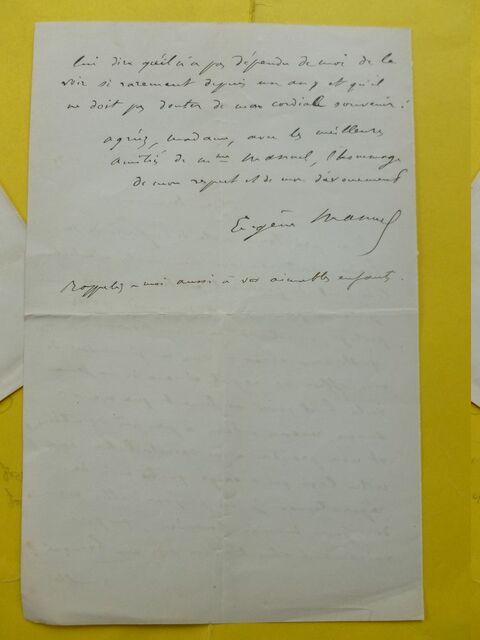 lui dire qu'il n'a pas dépendu de moi de le
voir si rarement depuis un an, et qu'il
ne doit pas douter de mon cordial souvenir.
agréez, madame, avec les meilleures
amitiés de Mme Manuel, l'hommage
de mon respect et de mon dévouement
Eugène Manuel
Rappelez-moi aussi à vos aimables enfants.